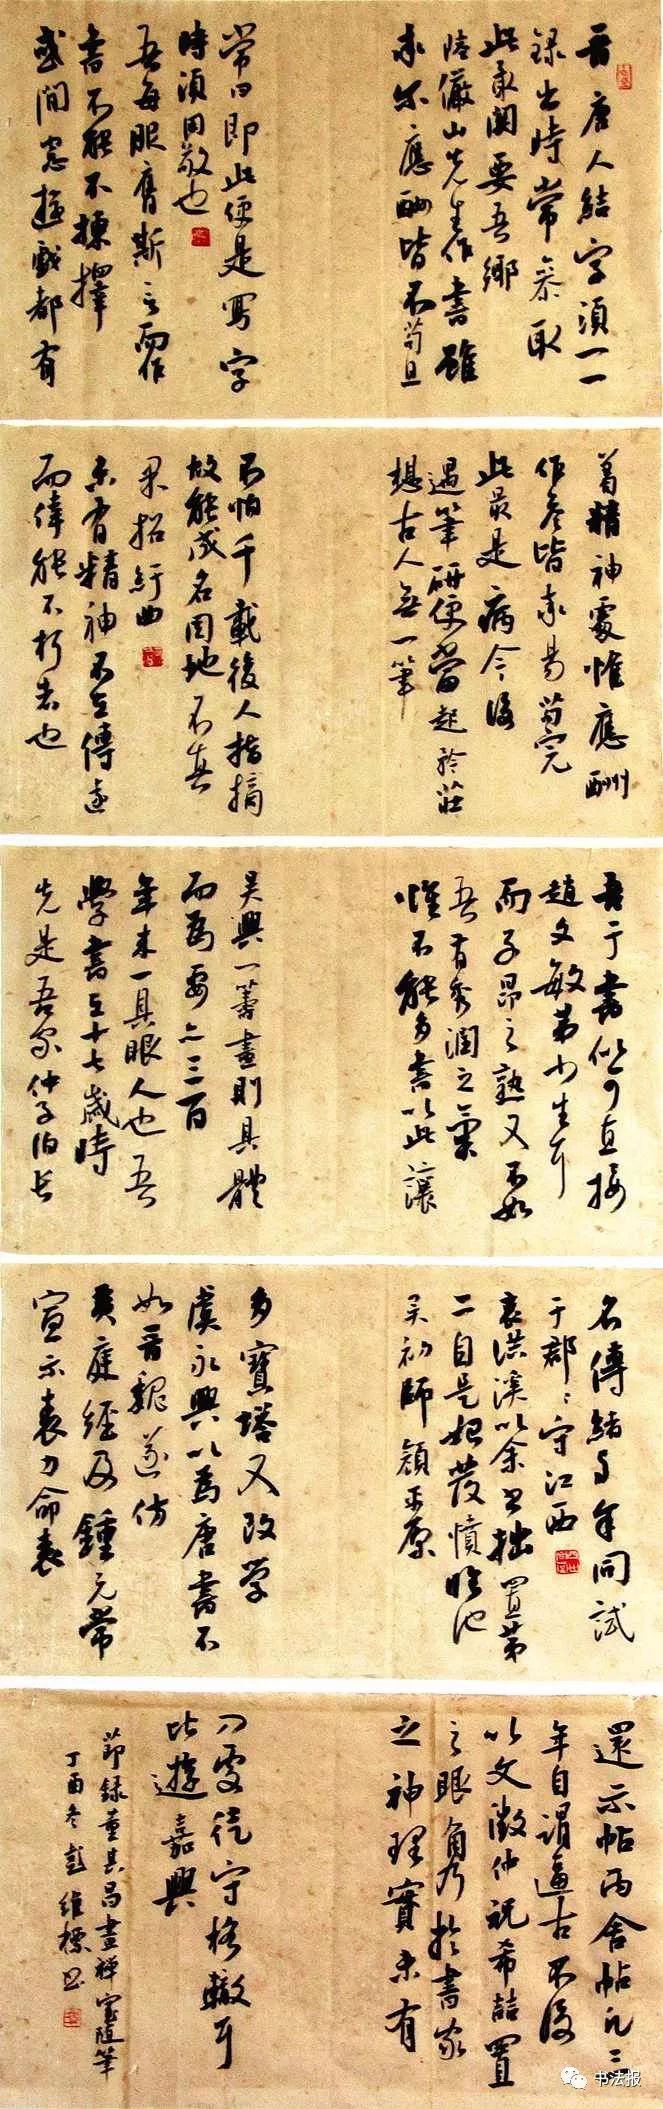 晋唐人結字須一一
録出時常參取
此最関要吾鄉
陸儼山先生作書雖
率尔應酬皆不苟且
常曰即此便是寫字
時須用敬也
吾每服膺斯言而作
書不能不揀擇
或閒窓遊戲都有
着精神處惟應酬
作答皆率易苟完
此最是病今後
遇筆研便當起矜莊
想古人無一筆
不怕千載後人指摘
故能成名因地不真
果招紆曲
未有精神不在傳遠
而偉能不朽者也
吾于書似可直接
趙文敏第少生耳
而子昂之熟又不如
吾有秀潤之氣
惟不能多書以此讓
吳興一籌畫則具體
而爲要亦三百
年來一具眼人也吾
學書在十七歲時
先是吾家仲子伯長
名傳緒與余同試
于郡〻守江西
衷洪溪以余書拙置第
二自是始發憤臨池
矣初師顏平原
多寶塔又改學
虞永興以爲唐書不
如晋魏遂仿
黄庭經及鍾元常
宣示表力命表
還示帖丙舍帖凡三
年自謂逼古不復
以文徵仲祝希喆置
之眼角乃於書家
之神理實未有
入處徒守格轍耳
比遊嘉興
節録董其昌畫禪室隨筆
丁酉冬彭維標書
书法报